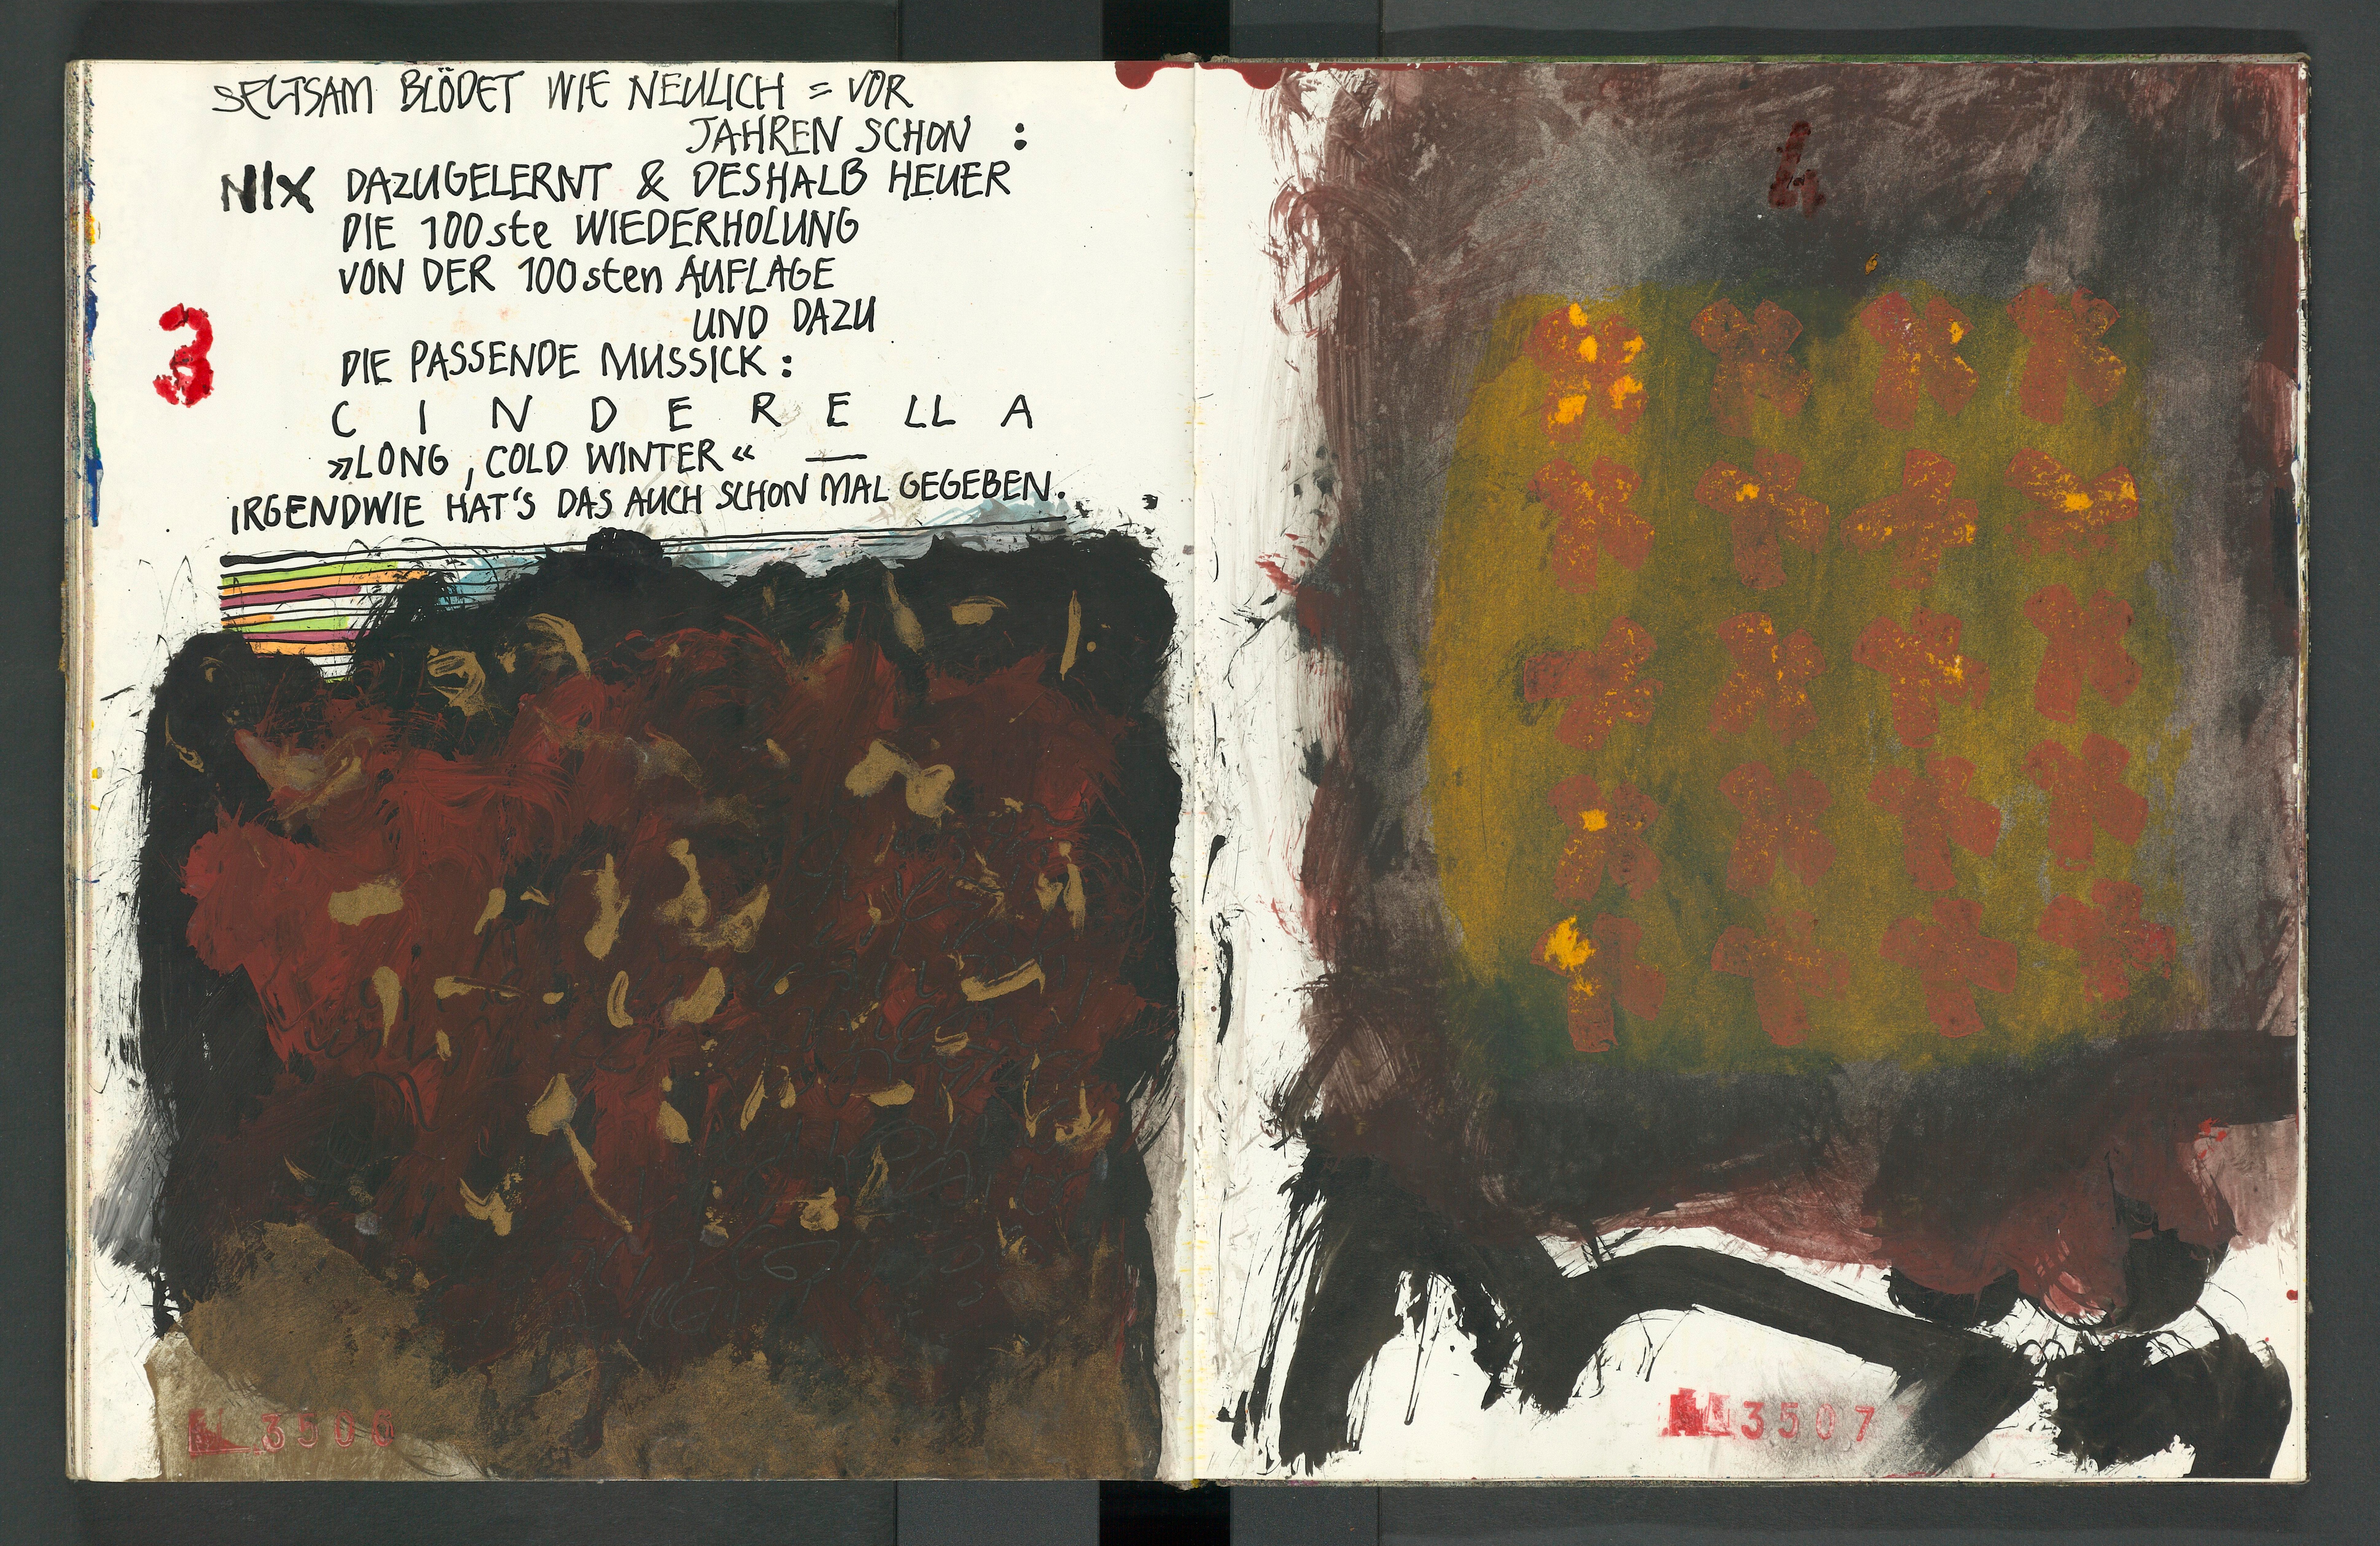 SELTSAM BLÖDET WIE NEULICH = VOR
JAHREN SCHON :
NIX DAZUGELERNT & DESHALB HEUER
DIE 100ste WIEDERHOLUNG
VON DER 100sten AUFLAGE
UND DAZU
3
DIE PASSENDE MUSSICK :
C I N D E R E LL A
»LONG, COLD WINTER« —
IRGENDWIE HAT'S DAS AUCH SCHON MAL GEGEBEN.
3506
4
3507